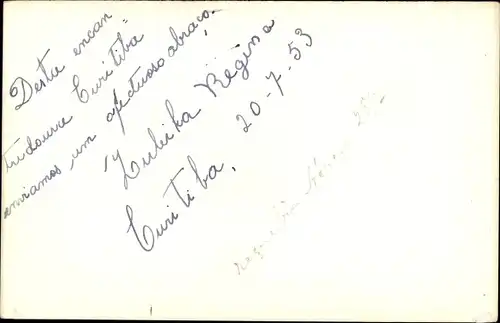 Desta encan-
tradoura Curitiba
enviamos um afetuoso abraço.
Zuleika Regina
Curitiba, 20-7-53